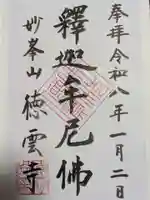 奉拝 令和八年一月二日
釋迦牟尼佛
妙峯山 徳雲寺